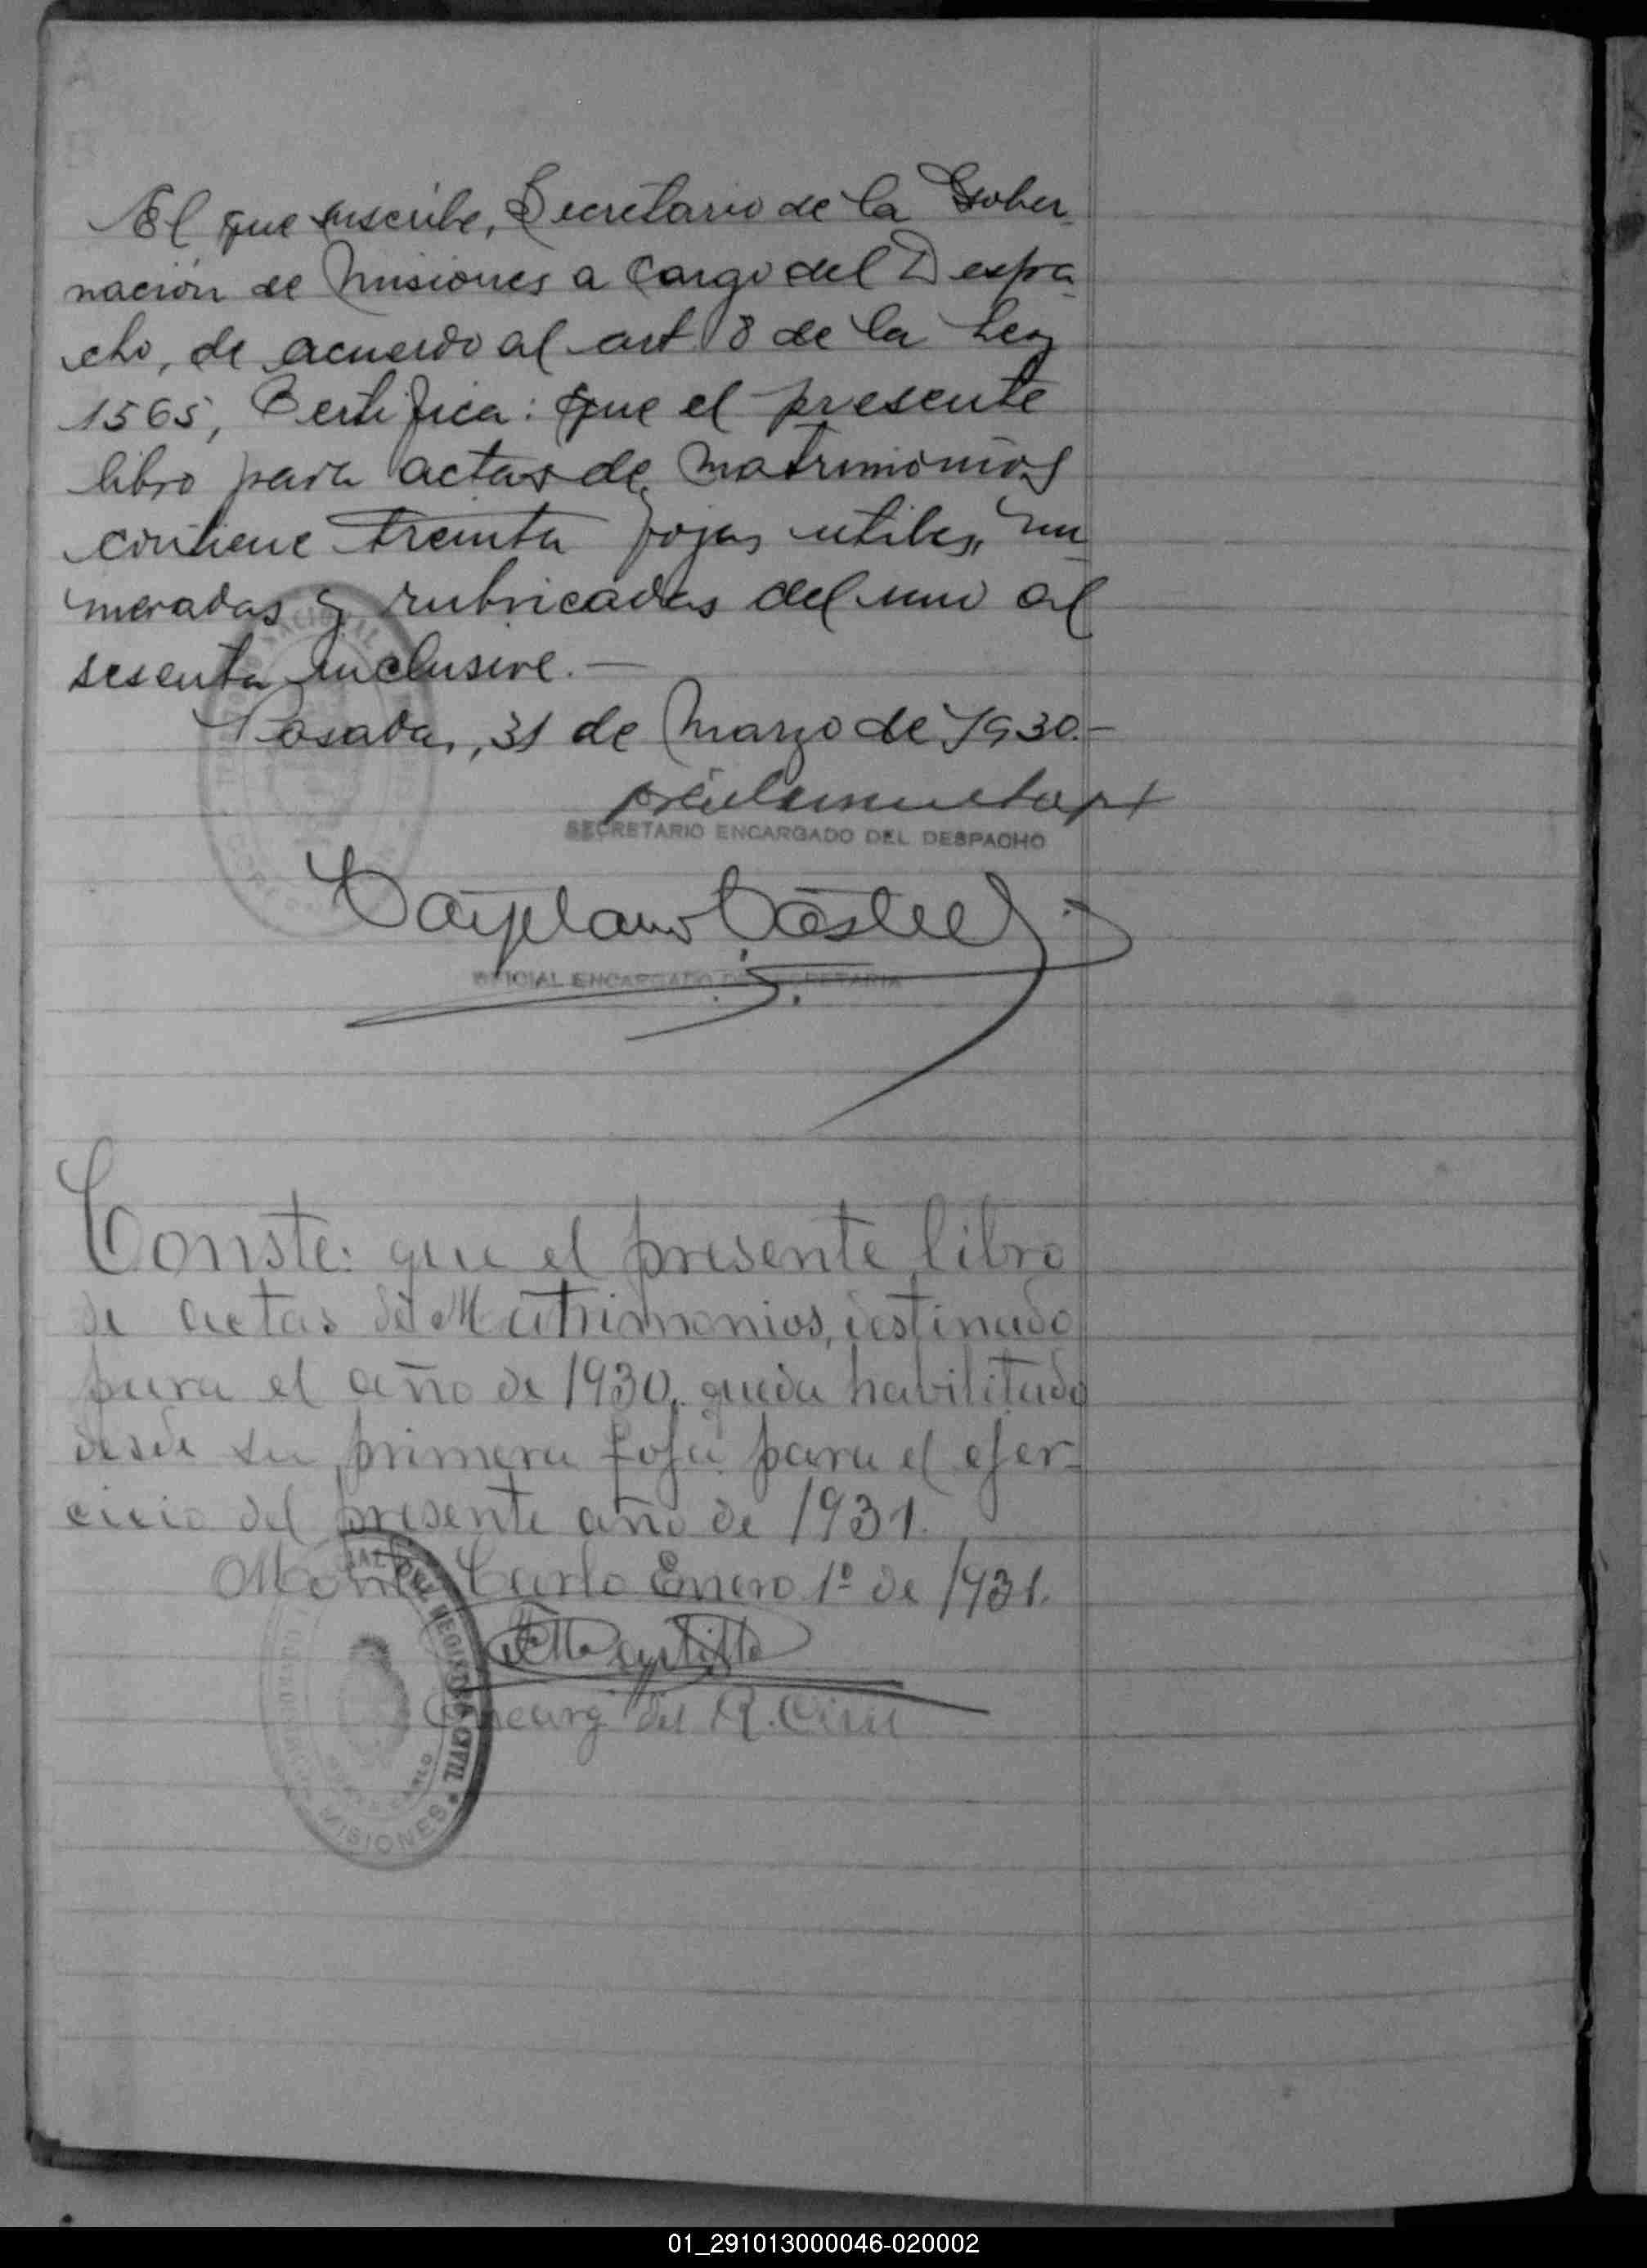 El que suscribe, Secretario de la Gober_
nación de Misiones a cargo del Despa_
cho, de acuerdo al art 8 de la Ley
1565, Certifica: que el presente
libro para actas de Matrimonios
contiene treinta fojas utiles, nu_
meradas y rubricadas del uno al
sesenta inclusive. —
Posadas, 31 de Marzo de 1930.-
SECRETARIO ENCARGADO DEL DESPACHO
OFICIAL ENCARGADO DE SECRETARIA
Conste: que el presente libro
de actas de Matrimonios, destinado
para el año de 1930, queda habilitado
desde su primera foja para el ejer-
cicio del presente año de 1931.
Monte Carlo Enero 1º de 1931.
Encarg del R. Civil
DEL REGISTRO CIVIL
MISIONES
01_291013000046-020002